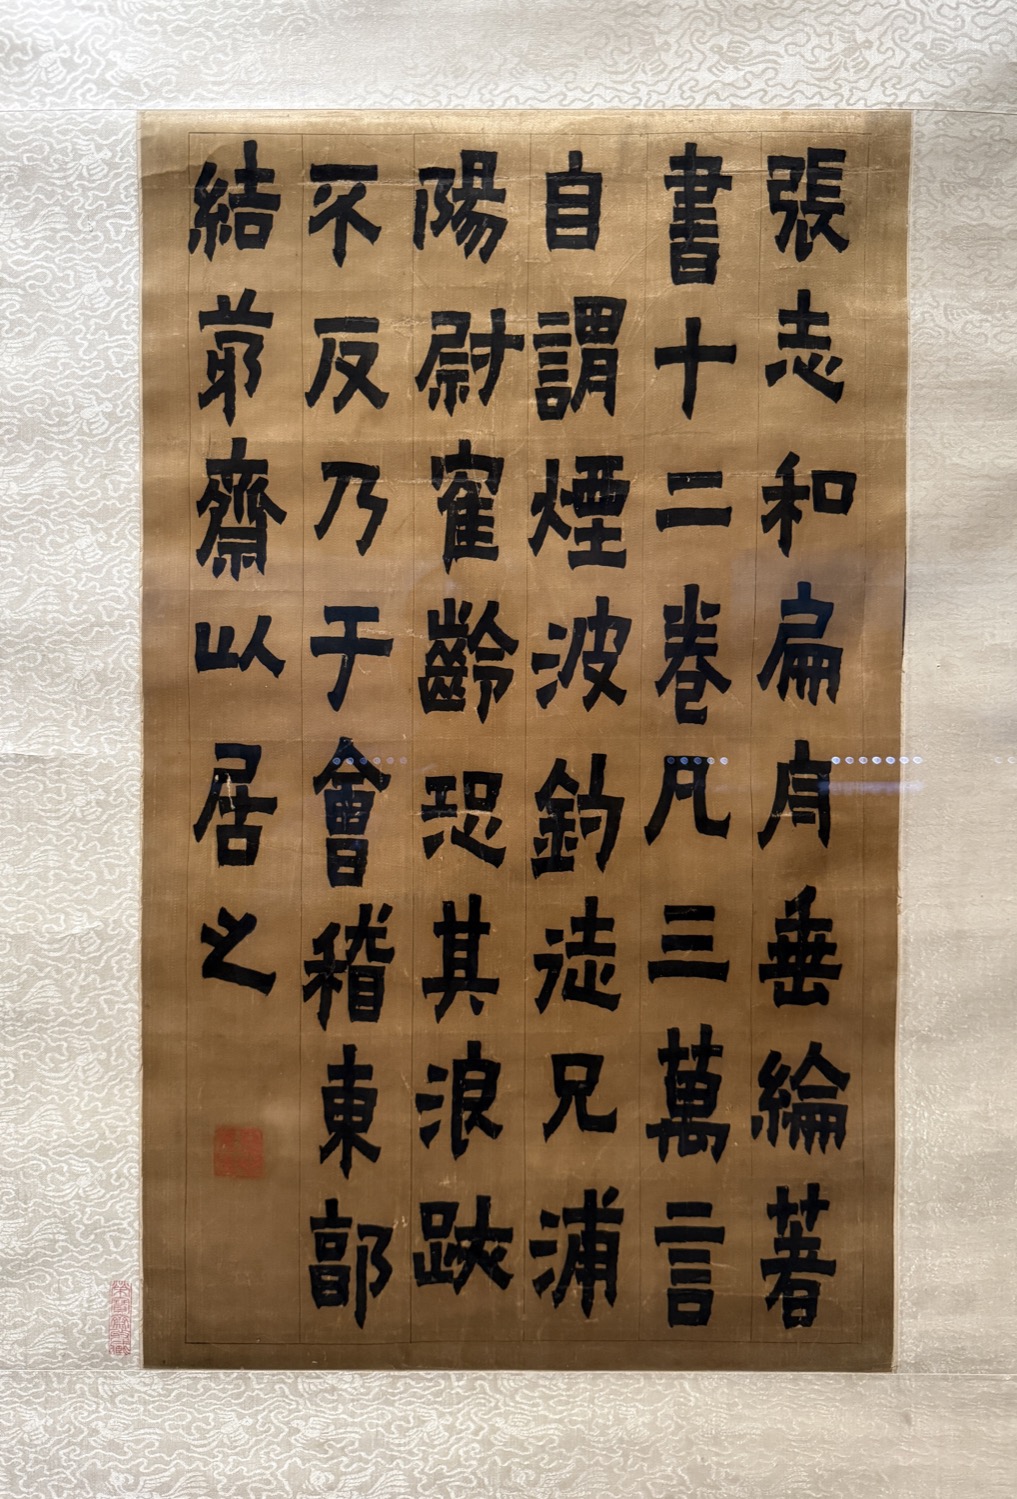 張志和扁舟垂綸著
書十二卷凡三萬言
自謂煙波釣徒兄浦
陽尉寉齡恐其浪跡
不反乃于會稽東郭
結茆齋以居之